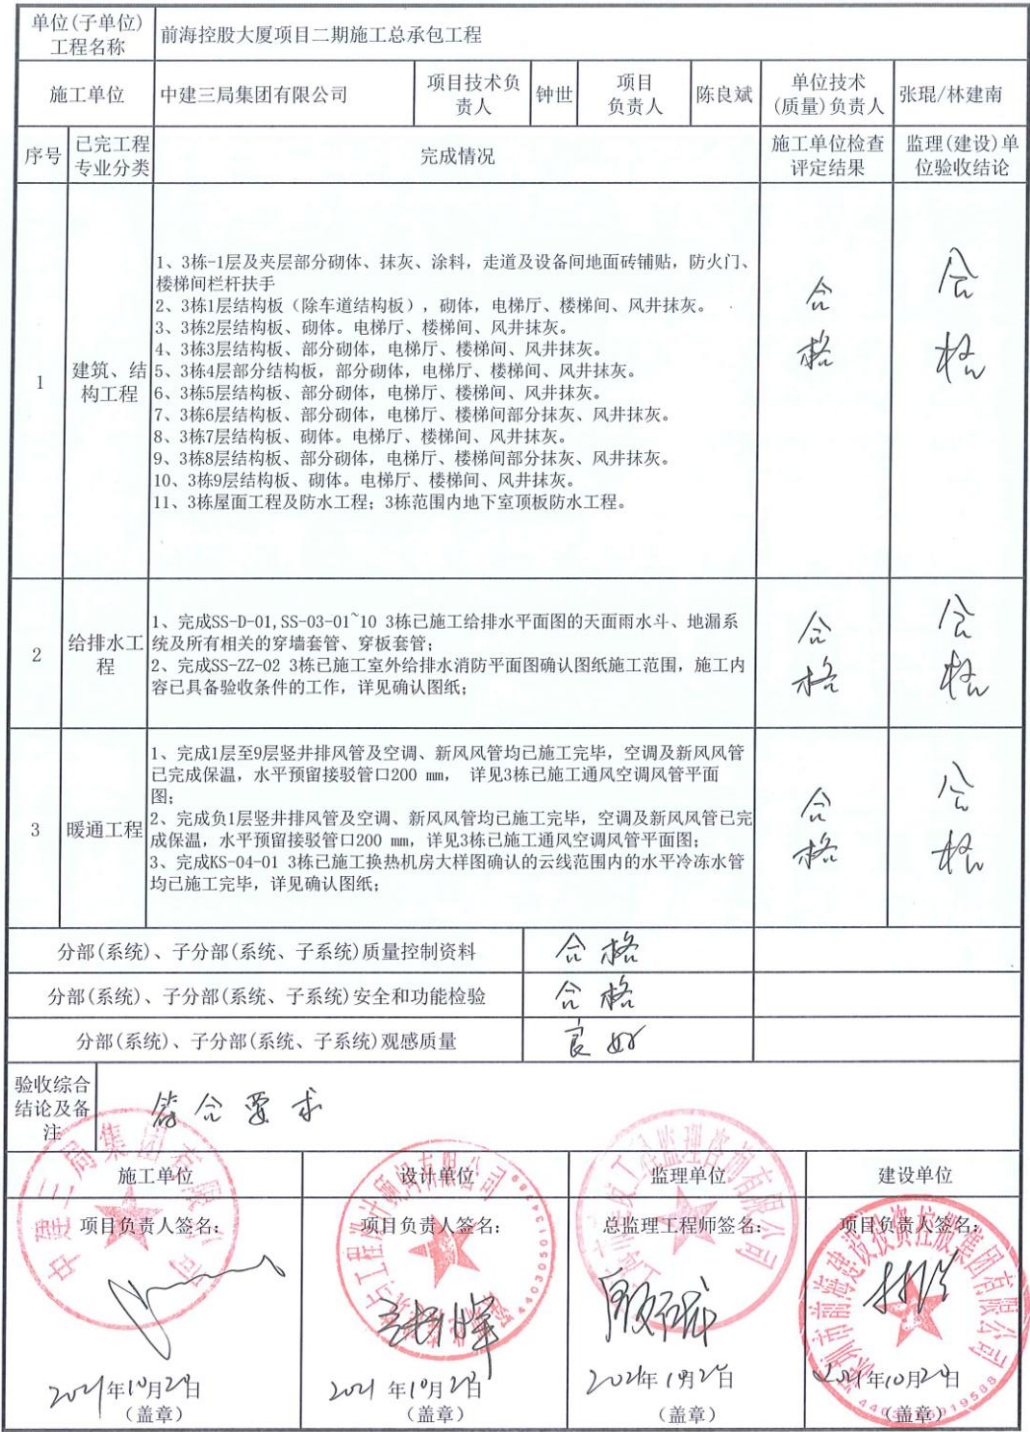 单位(子单位)
工程名称
前海控股大厦项目二期施工总承包工程
施工单位
中建三局集团有限公司
项目技术负
责人
钟世
项目
负责人
陈良斌
单位技术
(质量)负责人
张琨/林建南
序号
已完工程
专业分类
完成情况
施工单位检查
评定结果
监理(建设)单
位验收结论
1
建筑、结
构工程
1、3栋-1层及夹层部分砌体、抹灰、涂料，走道及设备间地面砖铺贴，防火门、
楼梯间栏杆扶手
2、3栋1层结构板（除车道结构板），砌体，电梯厅、楼梯间、风井抹灰。
3、3栋2层结构板、砌体。电梯厅、楼梯间、风井抹灰。
4、3栋3层结构板、部分砌体，电梯厅、楼梯间、风井抹灰。
5、3栋4层部分结构板，部分砌体，电梯厅、楼梯间、风井抹灰。
6、3栋5层结构板、部分砌体，电梯厅、楼梯间、风井抹灰。
7、3栋6层结构板、部分砌体，电梯厅、楼梯间部分抹灰、风井抹灰。
8、3栋7层结构板、砌体。电梯厅、楼梯间、风井抹灰。
9、3栋8层结构板、部分砌体，电梯厅、楼梯间部分抹灰、风井抹灰。
10、3栋9层结构板、砌体。电梯厅、楼梯间、风井抹灰。
11、3栋屋面工程及防水工程；3栋范围内地下室顶板防水工程。
合
格
合
格
2
给排水工
程
1、完成SS-D-01,SS-03-01~10 3栋已施工给排水平面图的天面雨水斗、地漏系
统及所有相关的穿墙套管、穿板套管；
2、完成SS-ZZ-02 3栋已施工室外给排水消防平面图确认图纸施工范围，施工内
容已具备验收条件的工作，详见确认图纸；
合
格
合
格
3
暖通工程
1、完成1层至9层竖井排风管及空调、新风风管均已施工完毕，空调及新风风管
已完成保温，水平预留接驳管口200 mm， 详见3栋已施工通风空调风管平面
图；
2、完成负1层竖井排风管及空调、新风风管均已施工完毕，空调及新风风管已完
成保温，水平预留接驳管口200 mm，详见3栋已施工通风空调风管平面图；
3、完成KS-04-01 3栋已施工换热机房大样图确认的云线范围内的水平冷冻水管
均已施工完毕，详见确认图纸；
合
格
合
格
分部(系统)、子分部(系统、子系统)质量控制资料
合格
分部(系统)、子分部(系统、子系统)安全和功能检验
合格
分部(系统)、子分部(系统、子系统)观感质量
良好
验收综合
结论及备
注
符合要求
施工单位
设计单位
监理单位
建设单位
项目负责人签名：
项目负责人签名：
总监理工程师签名：
项目负责人签名：
中建三局集团有限公司
深圳市前海建设投资控股集团有限公司
2021年10月20日
2021年10月20日
2021年10月20日
2021年10月20日
（盖章）
（盖章）
（盖章）
（盖章）